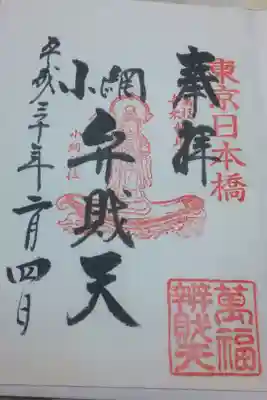 東京日本橋
奉拝
小網
弁財天
平成三十年二月四日
小網社
萬福
辨財天